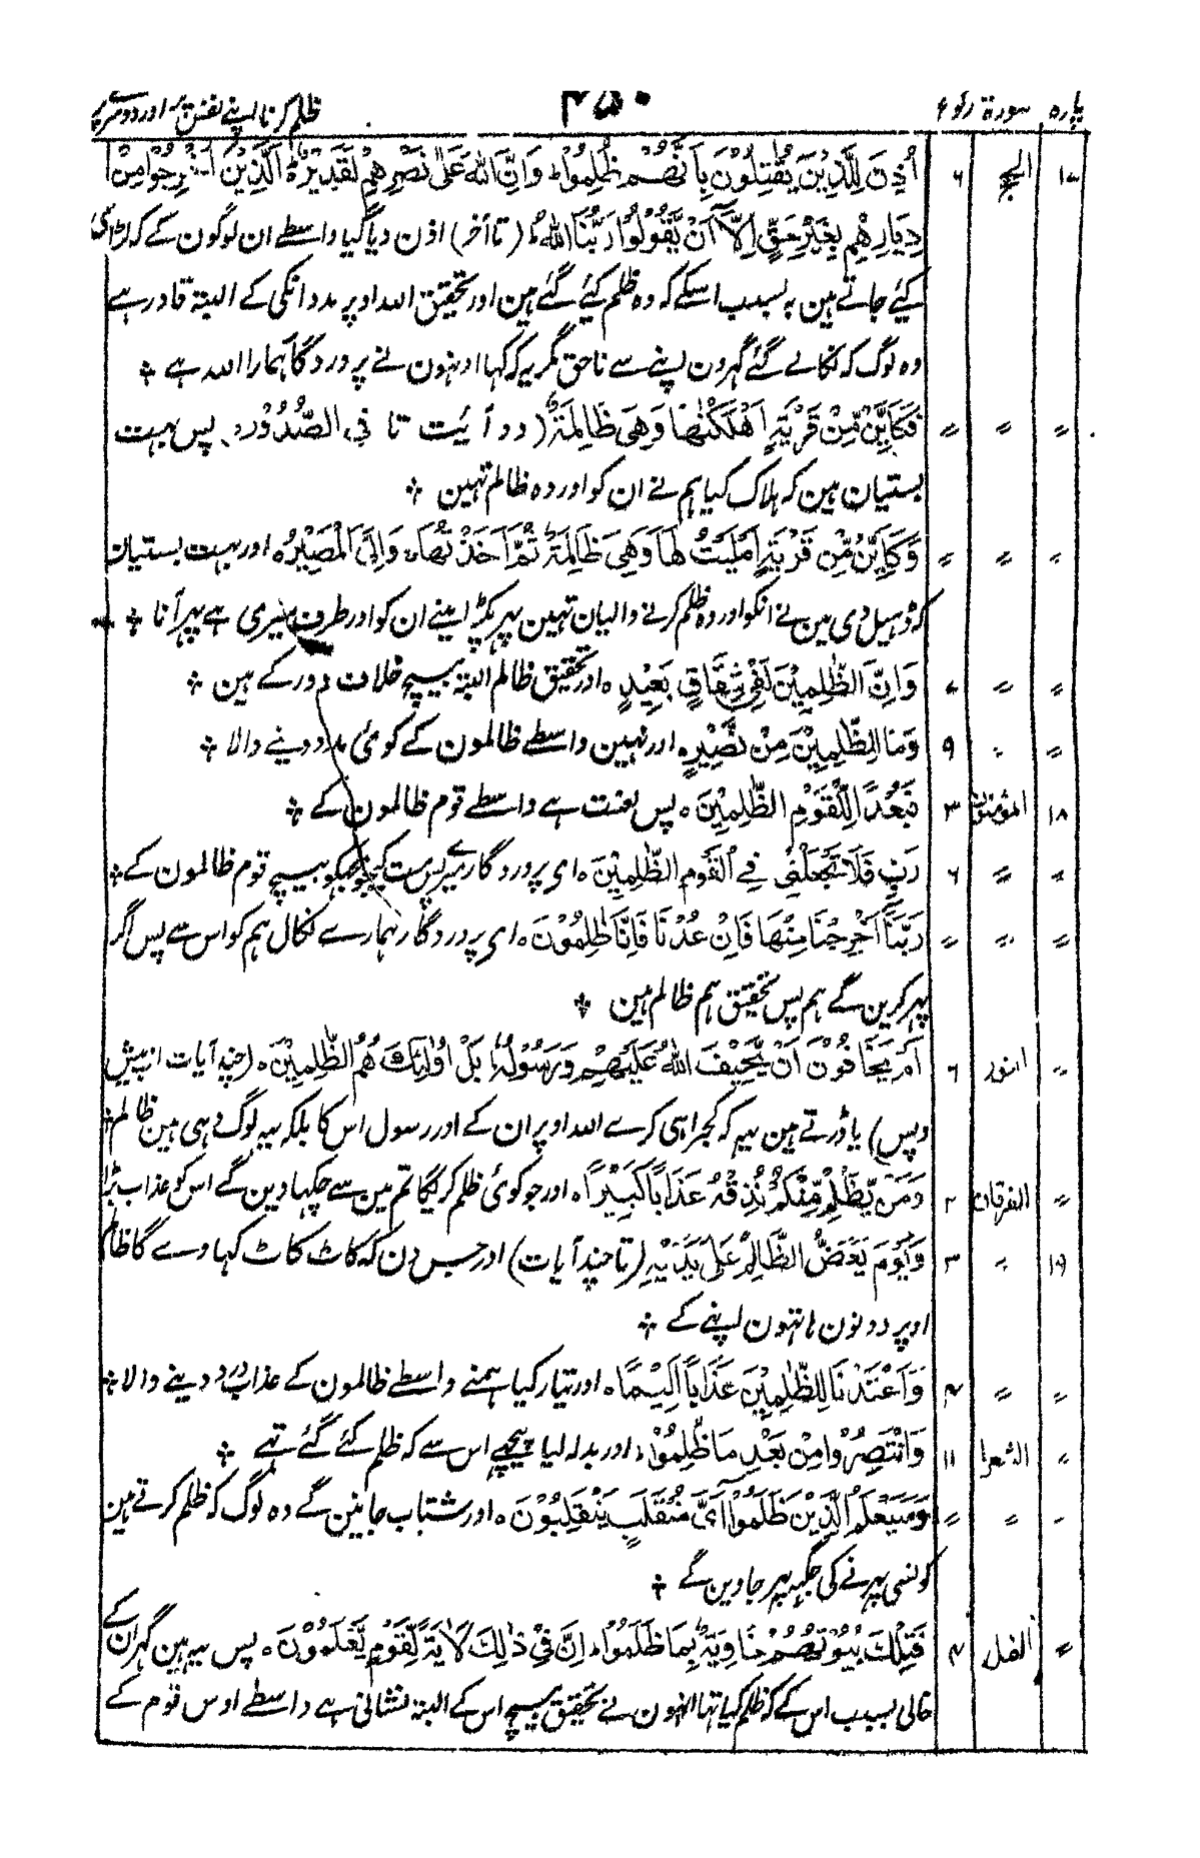 پارہ سورۃ رکوع ۴۵۰ ظلم کرنا اپنے نفس پر اور دوسرے پر
۱۷ الحج ۶ اُذِنَ لِلَّذِيْنَ يُقٰتَلُوْنَ بِاَنَّهُمْ ظُلِمُوْا ؕ وَاِنَّ اللهَ عَلٰى نَصْرِهِمْ لَقَدِيْرُ ۙ الَّذِيْنَ اُخْرِجُوْا مِنْ
دِيَارِهِمْ بِغَيْرِ حَقٍّ اِلَّآ اَنْ يَّقُوْلُوْا رَبُّنَا اللهُ ؕ (تا آخر) اذن دیا گیا واسطے ان لوگون کے کہ لڑائی
کیئے جاتے ہین بہ سبب اسکے کہ وہ ظلم کیئے گئے ہین اور تحقیق اللہ اوپر مدد انکی کے البتہ قادر ہے
وہ لوگ کہ نکالے گئے گہرون اپنے سے ناحق مگر یہ کہ کہا اونہون نے پروردگار ہمارا اللہ ہے ۞
〃 〃 〃 فَكَاَيِّنْ مِّنْ قَرْيَةٍ اَهْلَكْنٰهَا وَهِىَ ظَالِمَةٌ (دو آئیت تا فِى الصُّدُوْرِ) پس بہت
بستیان ہین کہ ہلاک کیا ہم نے ان کو اور وہ ظالم تہین ۞
〃 〃 〃 وَكَاَيِّنْ مِّنْ قَرْيَةٍ اَمْلَيْتُ لَهَا وَهِىَ ظَالِمَةٌ ثُمَّ اَخَذْتُهَا ۚ وَاِلَىَّ الْمَصِيْرُ ہ اور بہت بستیان
کہ ڈہیل دی مین نے انکو اور وہ ظلم کرنے والیان تہین پہر پکڑا مینے ان کو اور طرف میری ہے پہر آنا ۞
〃 〃 ۷ وَاِنَّ الظّٰلِمِيْنَ لَفِىْ شِقَاقٍ بَعِيْدٍ ہ اور تحقیق ظالم البتہ بیچ خلاف دور کے ہین ۞
〃 〃 ۹ وَمَا لِلظّٰلِمِيْنَ مِنْ نَّصِيْرٍ ہ اور نہین واسطے ظالمون کے کوئی مدد دینے والا ۞
۱۸ المؤمنون ۳ فَبُعْدًا لِّلْقَوْمِ الظّٰلِمِيْنَ ہ پس لعنت ہے واسطے قوم ظالمون کے ۞
〃 〃 ۶ رَبِّ فَلَا تَجْعَلْنِىْ فِى الْقَوْمِ الظّٰلِمِيْنَ ہ ای پروردگار میرے پس مت کیجیو مجہکو بیچ قوم ظالمون کے ۞
〃 〃 〃 رَبَّنَآ اَخْرِجْنَا مِنْهَا فَاِنْ عُدْنَا فَاِنَّا ظٰلِمُوْنَ ہ ای پروردگار ہمارے نکال ہم کو اس سے پس اگر
پہر کرین گے ہم پس تحقیق ہم ظالم ہین ۞
〃 النور ۶ اَمْ يَخَافُوْنَ اَنْ يَّحِيْفَ اللهُ عَلَيْهِمْ وَرَسُوْلُهٗ ؕ بَلْ اُولٰٓئِكَ هُمُ الظّٰلِمِيْنَ ہ (چند آیات از پیش
و پس) یا ڈرتے ہین یہ کہ کجراہی کرے اللہ اوپر ان کے اور رسول اس کا بلکہ یہ لوگ وہی ہین ظالم ۞
〃 الفرقان ۲ وَمَنْ يَّظْلِمْ مِّنْكُمْ نُذِقْهُ عَذَابًا كَبِيْرًا ہ اور جو کوئی ظلم کریگا تم مین سے چکہا دین گے اس کو عذاب بڑا
۱۹ 〃 ۳ وَيَوْمَ يَعَضُّ الظَّالِمُ عَلٰى يَدَيْهِ (تا چند آیات) اور جس دن کہ کاٹ کاٹ کہاوے گا ظالم
اوپر دونون ہاتہون اپنے کے ۞
〃 〃 ۴ وَاَعْتَدْنَا لِلظّٰلِمِيْنَ عَذَابًا اَلِيْمًا ہ اور تیار کیا ہمنے واسطے ظالمون کے عذاب درد دینے والا ۞
〃 الشعرا ۱۱ وَانْتَصَرُوْا مِنْ بَعْدِ مَا ظُلِمُوْا ؕ اور بدلہ لیا پیچہے اس سے کہ ظلم کئے گئے تہے ۞
〃 〃 〃 وَسَيَعْلَمُ الَّذِيْنَ ظَلَمُوْٓا اَىَّ مُنْقَلَبٍ يَّنْقَلِبُوْنَ ہ اور شتاب جانین گے وہ لوگ کہ ظلم کرتے ہین
کونسی پہرنے کی جگہہ پہر جاوین گے ۞
〃 النمل ۴ فَتِلْكَ بُيُوْتُهُمْ خَاوِيَةً ۢ بِمَا ظَلَمُوْا ؕ اِنَّ فِىْ ذٰلِكَ لَاٰيَةً لِّقَوْمٍ يَّعْلَمُوْنَ ہ پس یہ ہین گہر ان کے
خالی بسبب اس کے کہ ظلم کیا تہا انہون نے تحقیق بیچ اس کے البتہ نشانی ہے واسطے اوس قوم کے